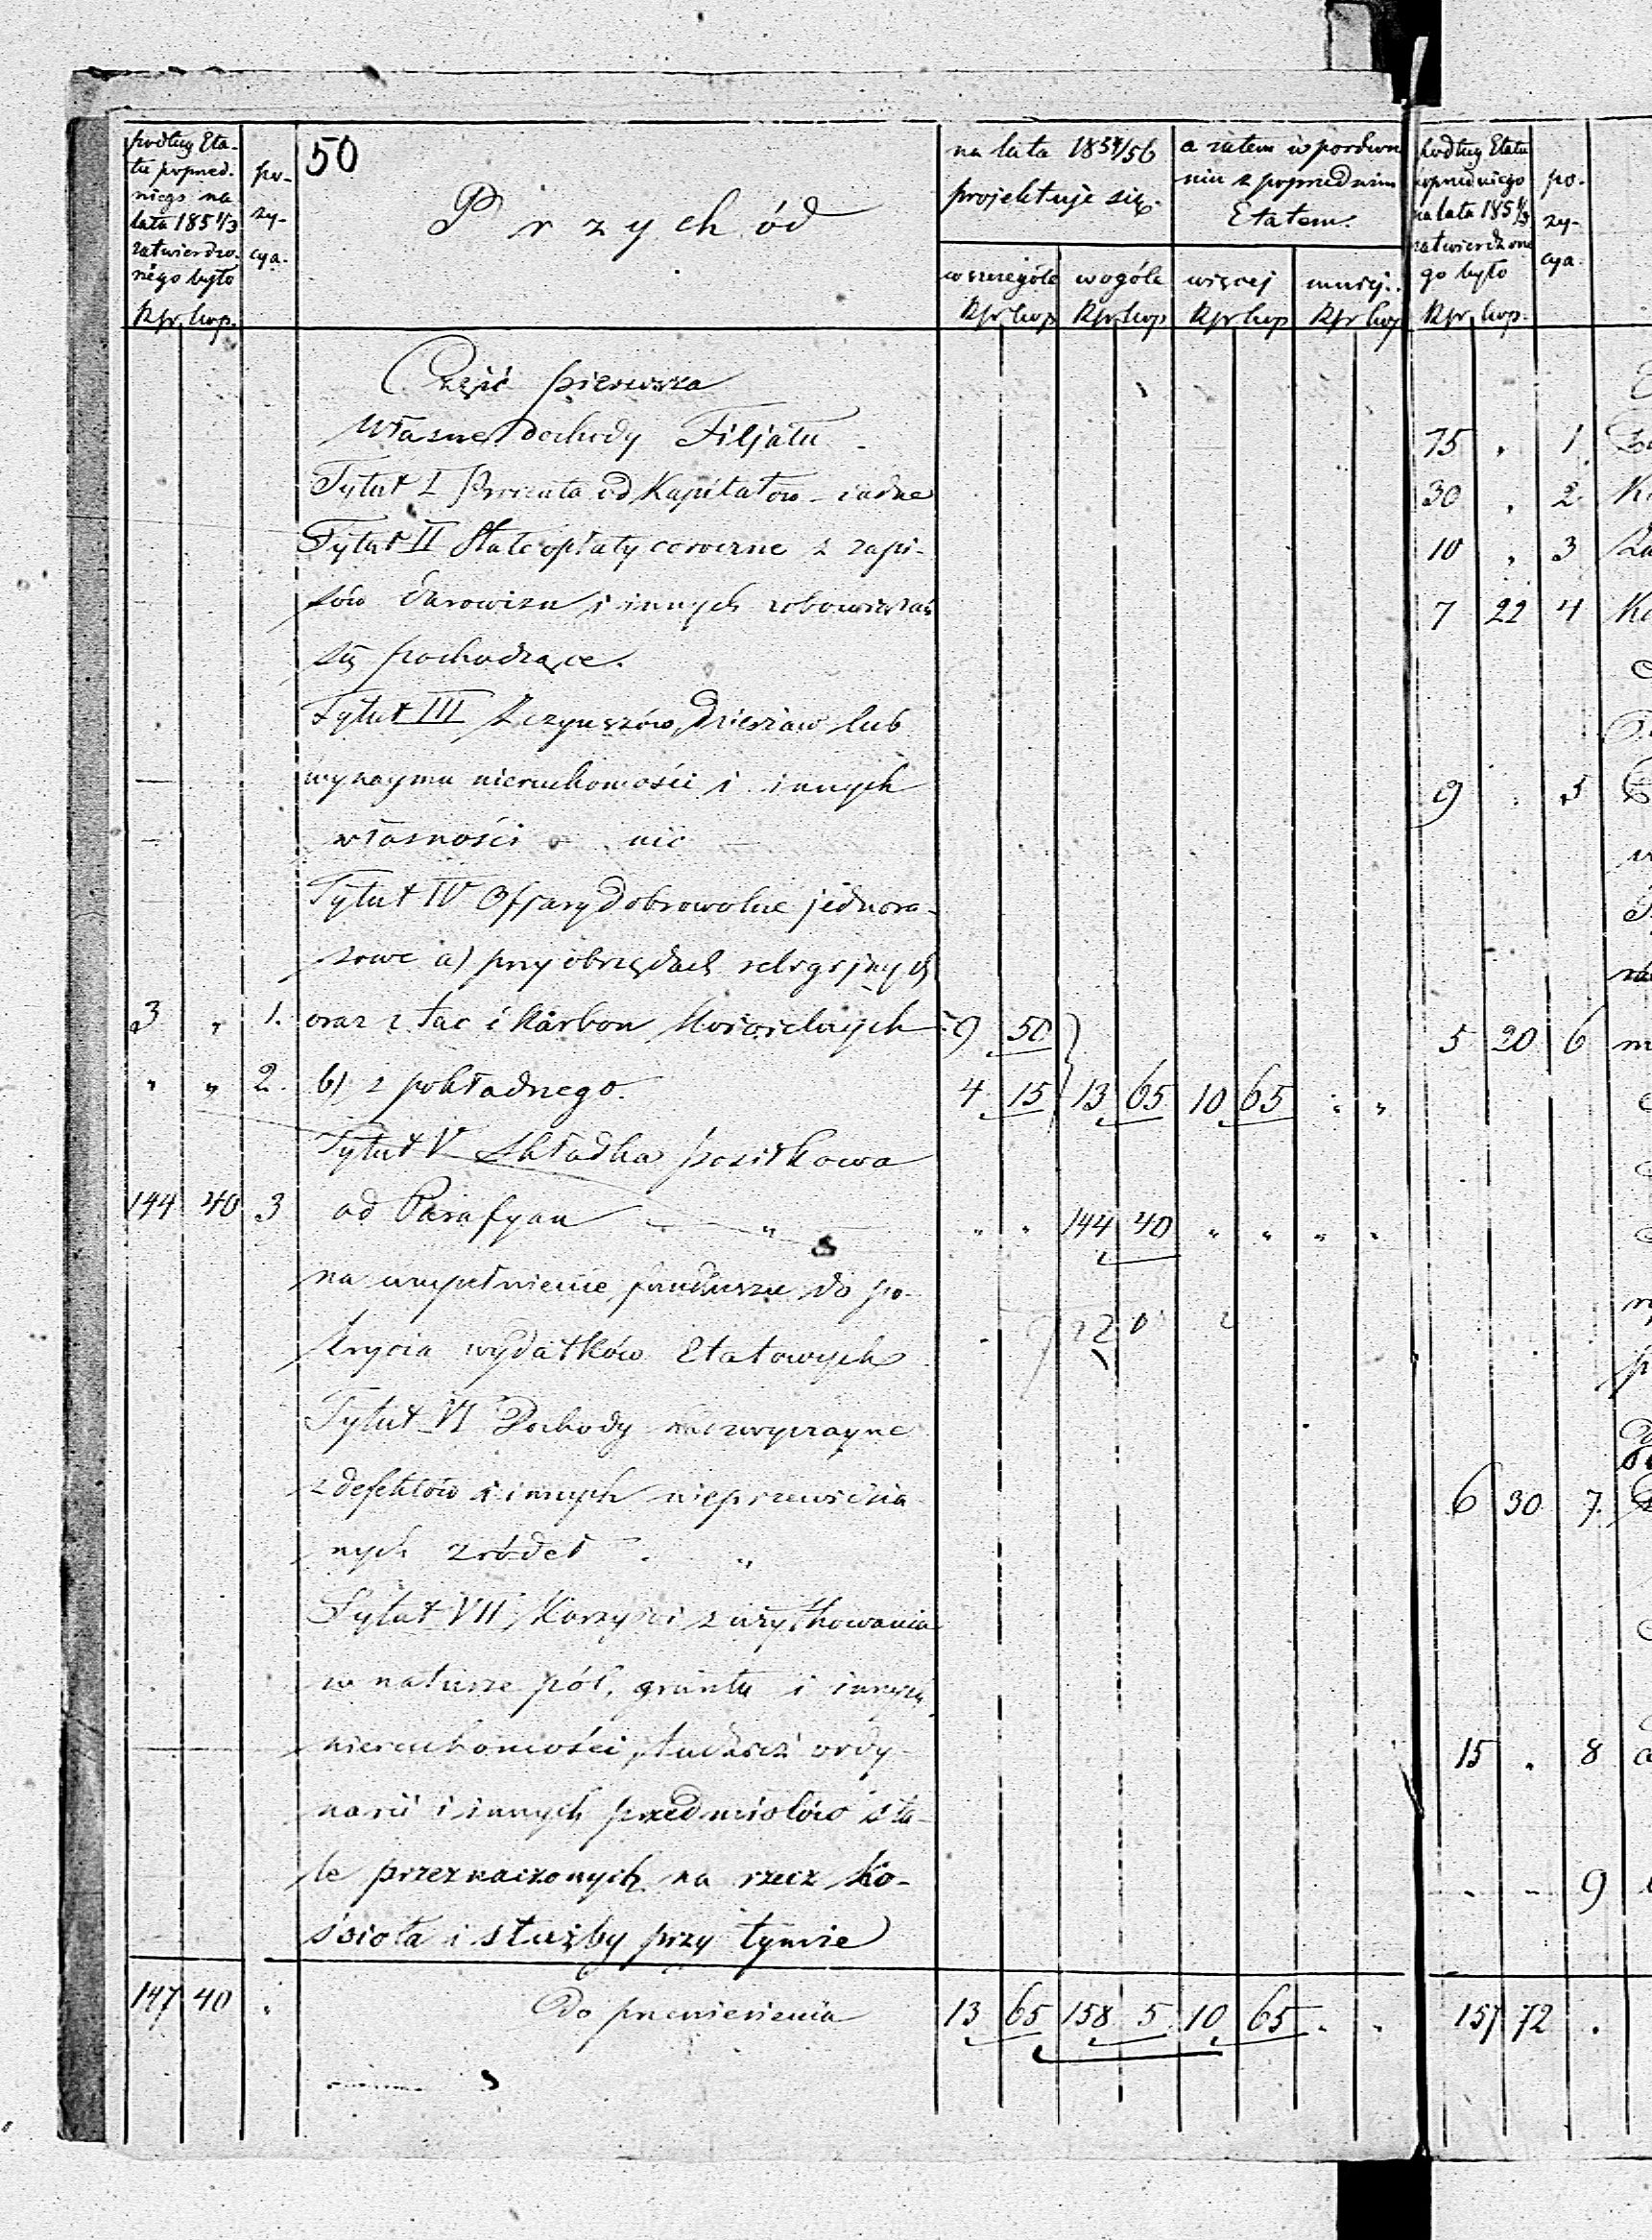 50
podług Eta-
tu poprzed.
niego na
lata 1851/3
zatwierdzo.
nego było
Rsr kop.
po-
zy-
cya.
Przychód
na lata 1854/56
projektuje się.
w szczególe
Rsr kop
w ogóle
Rsr kop
a zatem w porówna
niu z poprzednim
Etatem.
więcej
Rsr kop
mniej.
Rsr kop
Część pierwsza
Własne dochody Filjału
Tytuł I Procenta od Kapitałów - żadne
Tytuł II Stałe opłaty coroczne z zapi-
sów darowizn i innych zobowiązań
się pochodzące.
Tytuł III Z czynszów, dzierżaw lub
wynaymu nieruchomości i innych
własności nic
Tytuł IV Offiary dobrowolne jednora-
zowe a) przy obrzędach religijnych
3 „ 1. oraz z tac i karbon kościelnych 9 50
„ „ 2. b) z pokładnego. 4 15 13 65 10 65 „ „
Tytuł V Składka posiłkowa
144 40 3 od Parafyan „ „ „ 144 40 „ „ „ „
na uzupełnienie funduszu do po-
krycia wydatków Etatowych
Tytuł VI Dochody nadzwyczayne
z defektów i innych nieprzewidzia
nych źródeł „
Tytuł VII Korzyści z użytkowania
w naturze pól, gruntu i innych
nieruchomości, tudzież ordy-
naryi i innych przedmiotów sta-
le przeznaczonych na rzecz Ko-
ścioła i służby przy tymże
147 40 . Do przeniesienia 13 65 158 5 10 65 . .
podług Etatu
poprzedniego
na lata 1851/3
zatwierdzone
go było
Rsr kop.
po-
zy-
cya.
75 „ 1.
30 „ 2.
10 „ 3
7 22 4
9 „ 5
5 20 6
6 30 7.
15 „ 8
- - 9
157 72 .